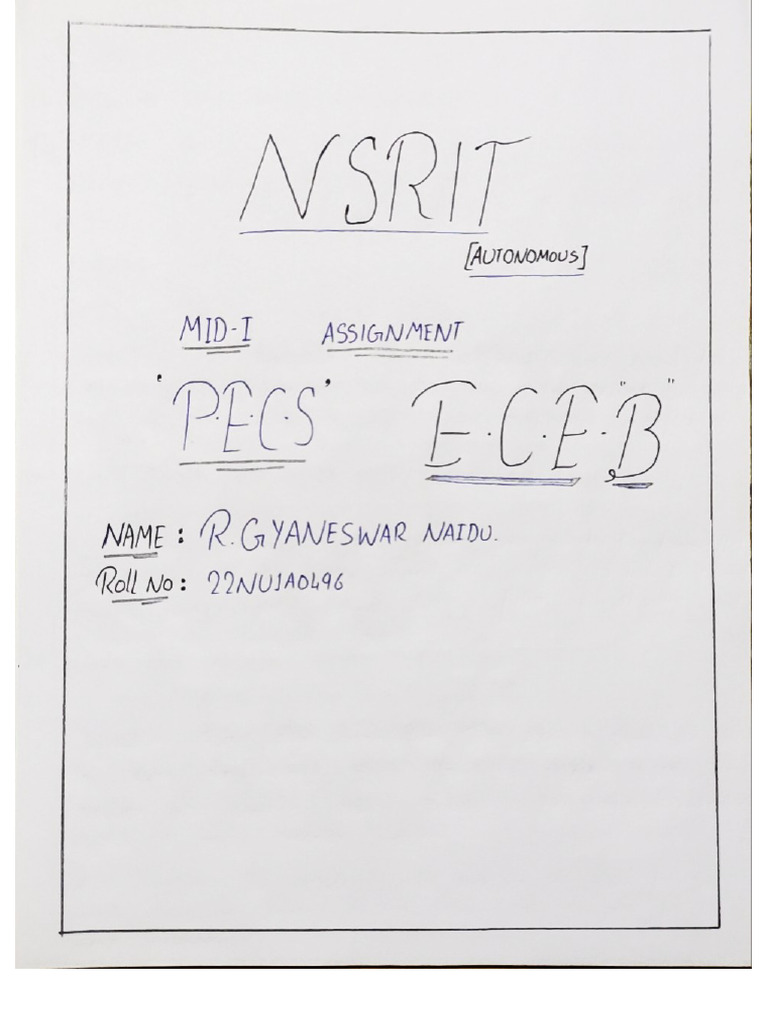 NSRIT
[AUTONOMOUS]
MID-I ASSIGNMENT
'P.E.C.S' E.C.E. "B"
NAME : R. GYANESWAR NAIDU.
Roll No : 22NU1A0496